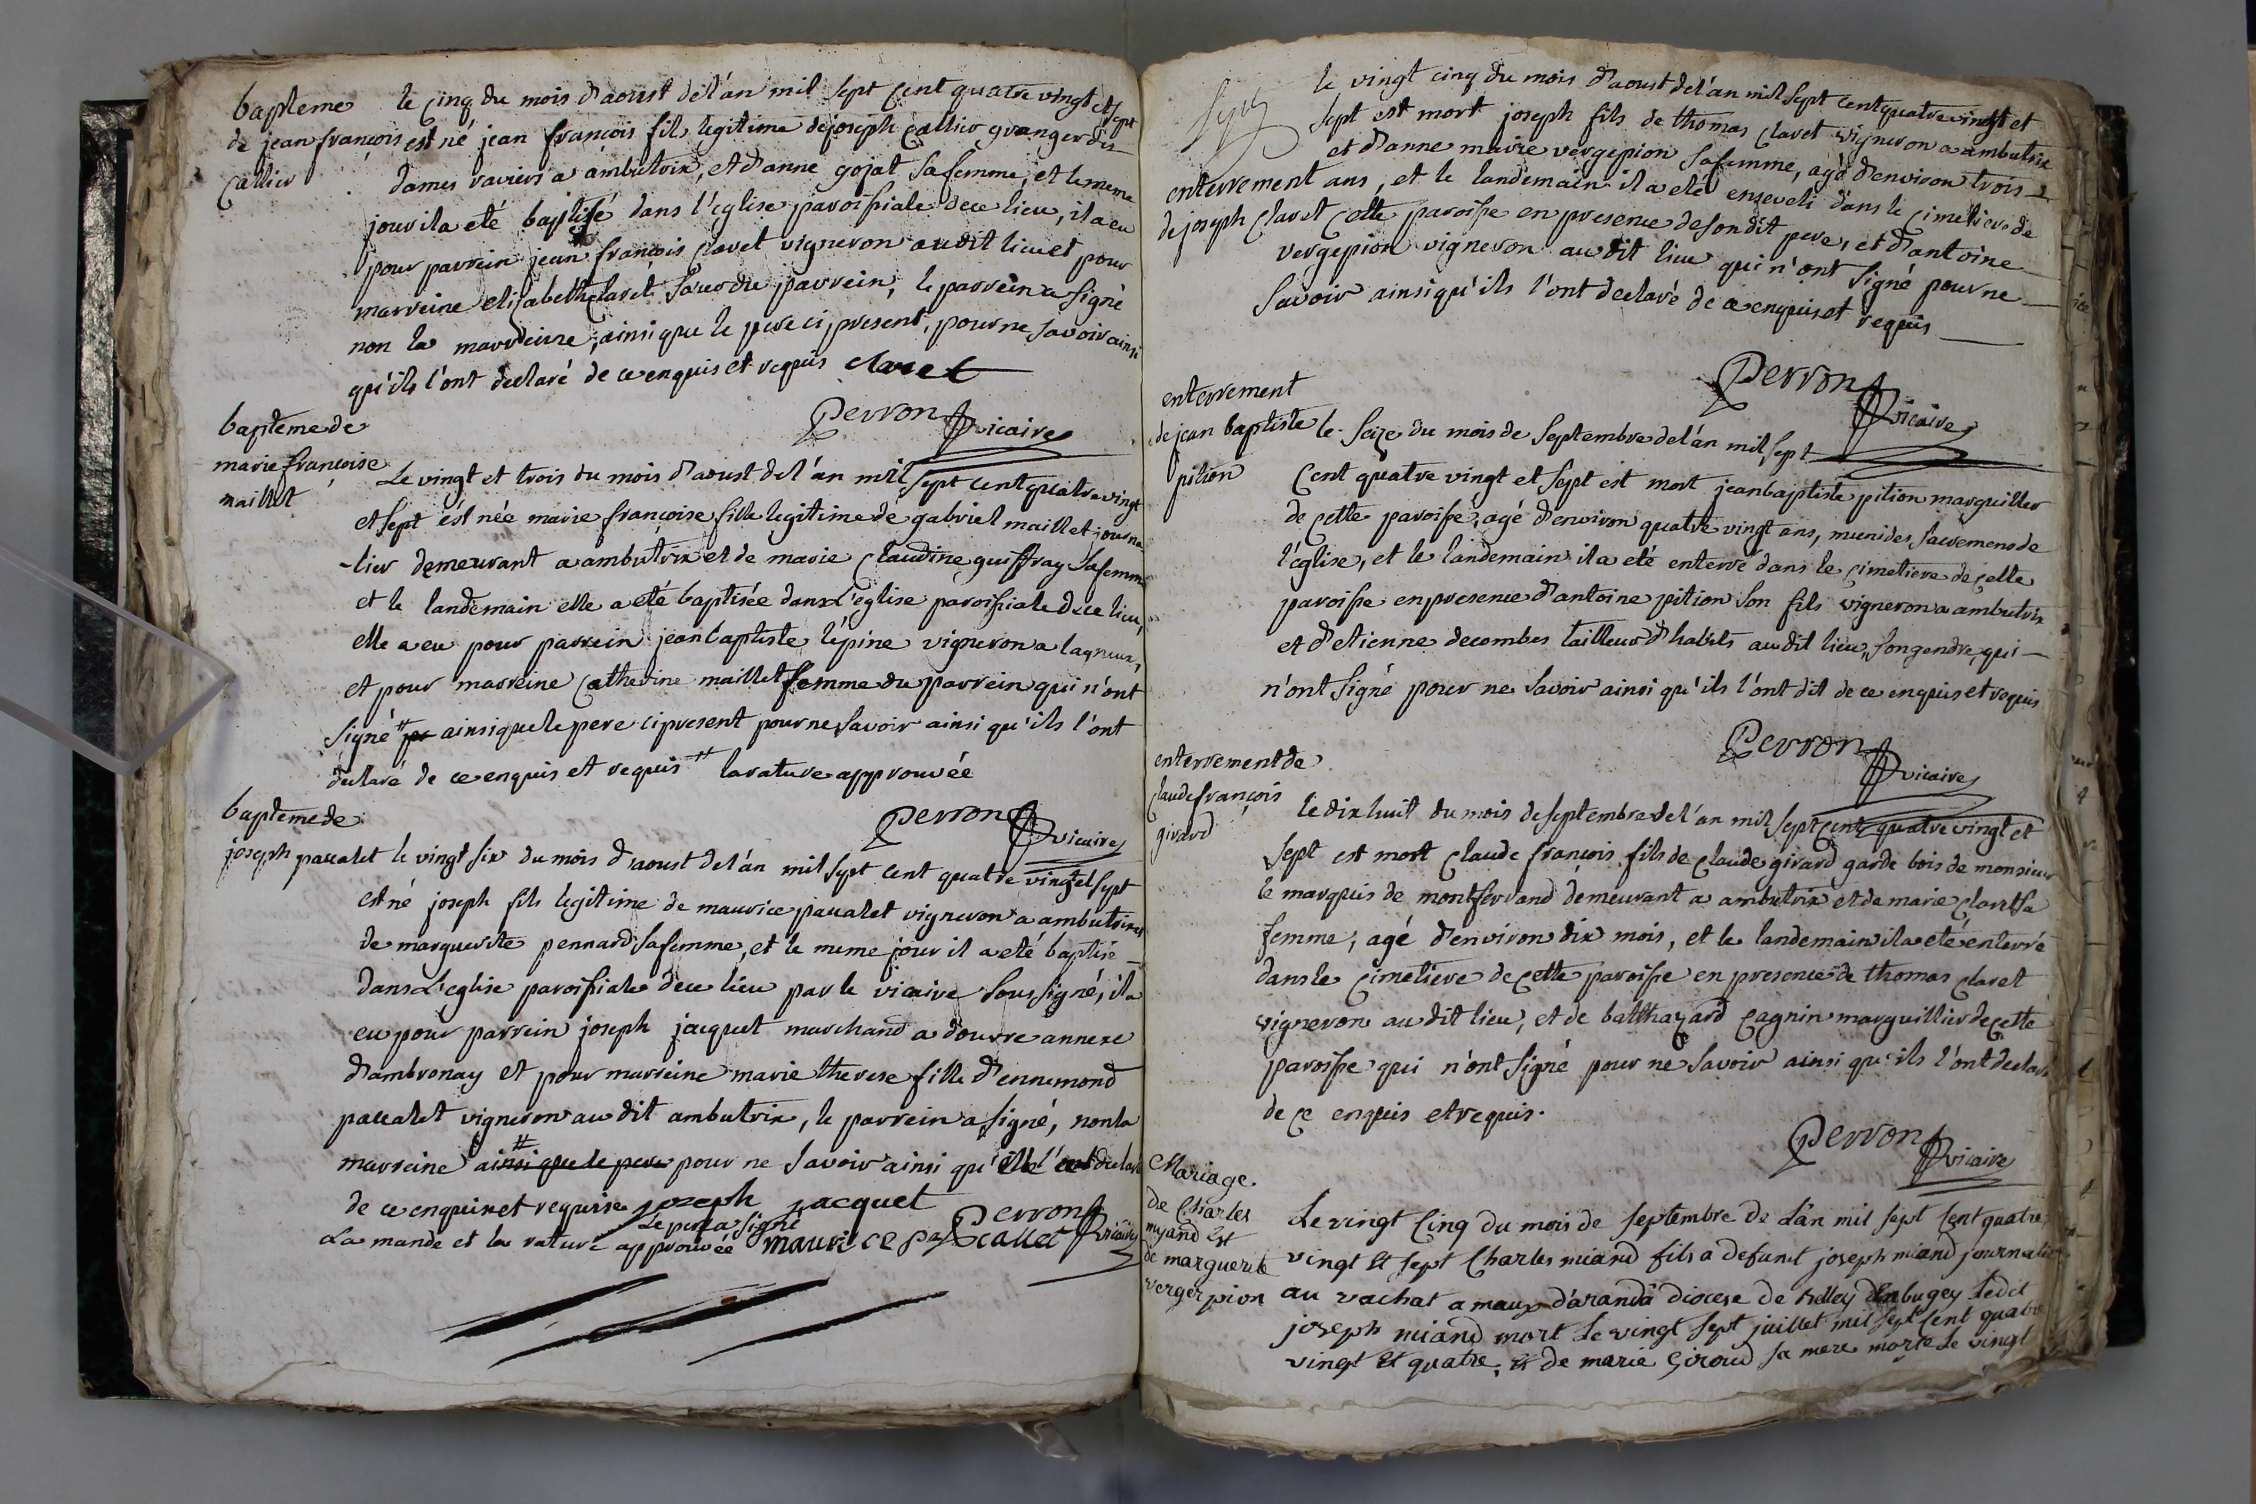 bapteme
de jean françois
callier
le cinq du mois d'aoust de l'an mil sept cent quatre vingt et sept
est né jean françois fils legitime de joseph callier granger des
dames a ambutrix, et d'anne gojat sa femme, et le meme
jour il a eté baptisé dans l'eglise paroissiale de ce lieu, il a eu
pour parrein jean françois claret vigneron au dit lieu et pour
marreine elisabeth claret soeur du parrein, le parrein a signé
non la marreine, ainsi que le pere ci present, pour ne savoir ainsi
qu'ils l'ont declaré de ce enquis et requis claret
Perron vicaire
bapteme de
marie françoise
maillet
Le vingt et trois du mois d'aoust de l'an mil sept cent quatre vingt
et sept est née marie françoise fille legitime de gabriel maillet journa
-lier demeurant a ambutrix et de marie claudine guiffray sa femme
et le landemain elle a eté baptisée dans l'eglise paroissiale de ce lieu,
elle a eu pour parrein jean baptiste lepine vigneron a lagneux,
et pour marreine catherine maillet femme du parrein qui n'ont
signé # pr ainsi que le pere ci present pour ne savoir ainsi qu'ils l'ont
declaré de ce enquis et requis # la rature approuvée
Perron vicaire
bapteme de
joseph paualet
le vingt six du mois d'aoust de l'an mil sept cent quatre vingt et sept
est né joseph fils legitime de maurice paualet vigneron a ambutrix et
de marguerite pennard sa femme, et le meme jour il a eté baptisé
dans l'eglise paroissiale de ce lieu par le vicaire soussigné, il a
eu pour parrein joseph jacquet marchand a douvre annexe
d'ambronay et pour marreine marie therese fille d'ennemond
paualet vigneron au dit ambutrix, le parrein a signé, non la
marreine ainsi que le pere pour ne savoir ainsi qu'elle l'a declaré
de ce enquise et requise joseph jacquet
# Le pere a signé
La mande et la rature approuvée maurice pacallet Perron vicaire
Sept
enterrement
de joseph claret
le vingt cinq du mois d'aoust de l'an mil sept cent quatre vingt et
sept est mort joseph fils de thomas claret vigneron a ambutrix
et d'anne marie vergepion sa femme, agé d'environ trois
ans, et le landemain il a eté enseveli dans le cimetiere de
cette paroisse en presence de son dit pere, et d'antoine
vergepion vigneron au dit lieu qui n'ont signé pour ne
savoir ainsi qu'ils l'ont declaré de ce enquis et requis
Perron vicaire
enterrement
de jean baptiste
pition
le seize du mois de septembre de l'an mil sept
cent quatre vingt et sept est mort jean baptiste pition marguiller
de cette paroisse, agé d'environ quatre vingt ans, muni des sacremens de
l'église, et le landemain il a eté enterré dans le cimetiere de cette
paroisse en presence d'antoine pition son fils vigneron a ambutrix
et d'etienne decombes tailleur d'habits au dit lieu, son gendre, qui
n'ont signé pour ne savoir ainsi qu'ils l'ont dit de ce enquis et requis
Perron vicaire
enterrement de
claude françois
girard
le dix huit du mois de septembre de l'an mil sept cent quatre vingt et
sept est mort claude françois fils de claude girard garde bois de monsieur
le marquis de montferrand demeurant a ambutrix et de marie claret sa
femme, agé d'environ dix mois, et le landemain il a eté enterré
dans le cimetiere de cette paroisse en presence de thomas claret
vigneron au dit lieu, et de balthazard cagnin marguillier de cette
paroisse qui n'ont signé pour ne savoir ainsi qu'ils l'ont declaré
de ce enquis et requis.
Perron vicaire
Mariage
de Charles
myand Et
de marguerite
vergerpion
Le vingt cinq du mois de septembre de L'an mil sept cent quatre
vingt et sept Charles miand fils a defunt joseph miand journalier
au vachat a maux d'aranda diocese de Belley En bugey ledit
joseph miand mort Le vingt sept juillet mil sept cent quatre
vingt Et quatre, Et de marie Giroud sa mere morte Le vingt